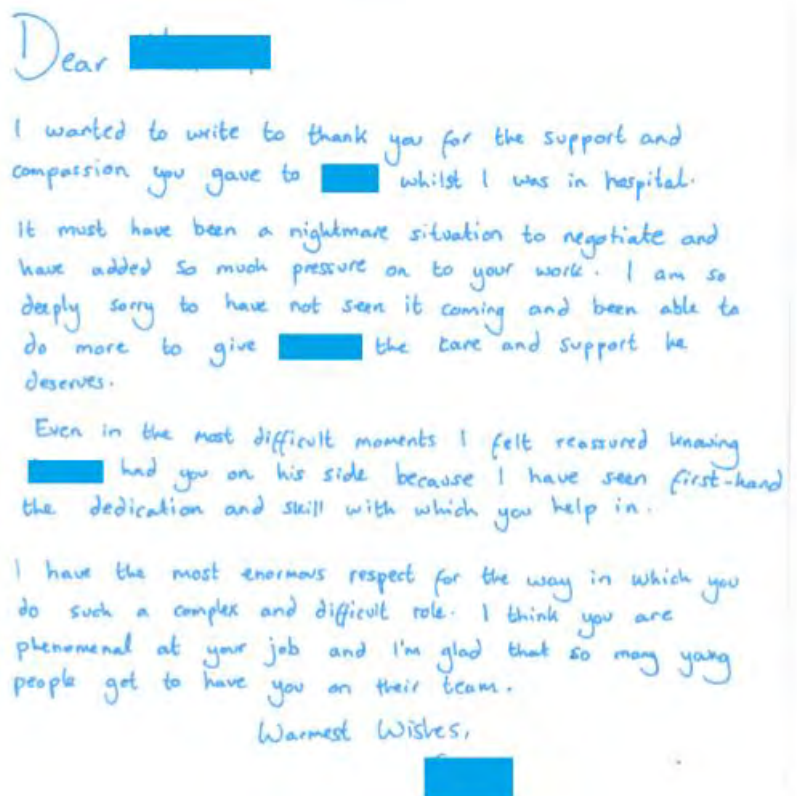 Dear
I wanted to write to thank you for the support and
compassion you gave to whilst I was in hospital.
It must have been a nightmare situation to negotiate and
have added so much pressure on to your work. I am so
deeply sorry to have not seen it coming and been able to
do more to give the care and support he
deserves.
Even in the most difficult moments I felt reassured knowing
had you on his side because I have seen first-hand
the dedication and skill with which you help in.
I have the most enormous respect for the way in which you
do such a complex and difficult role. I think you are
phenomenal at your job and I'm glad that so many young
people get to have you on their team.
Warmest Wishes,